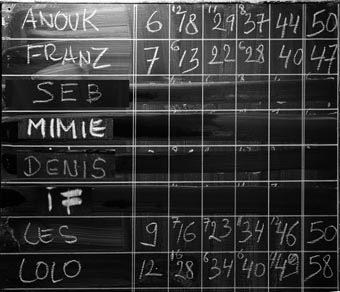 ANOUK 6 12 18 11 29 8 37 44 50
FRANZ 7 6 13 22 6 28 40 47
SEB
MIMIE
DENIS
IF
LES 9 7 16 7 23 34 46 50
LOLO 12 16 28 6 34 6 40 49 58